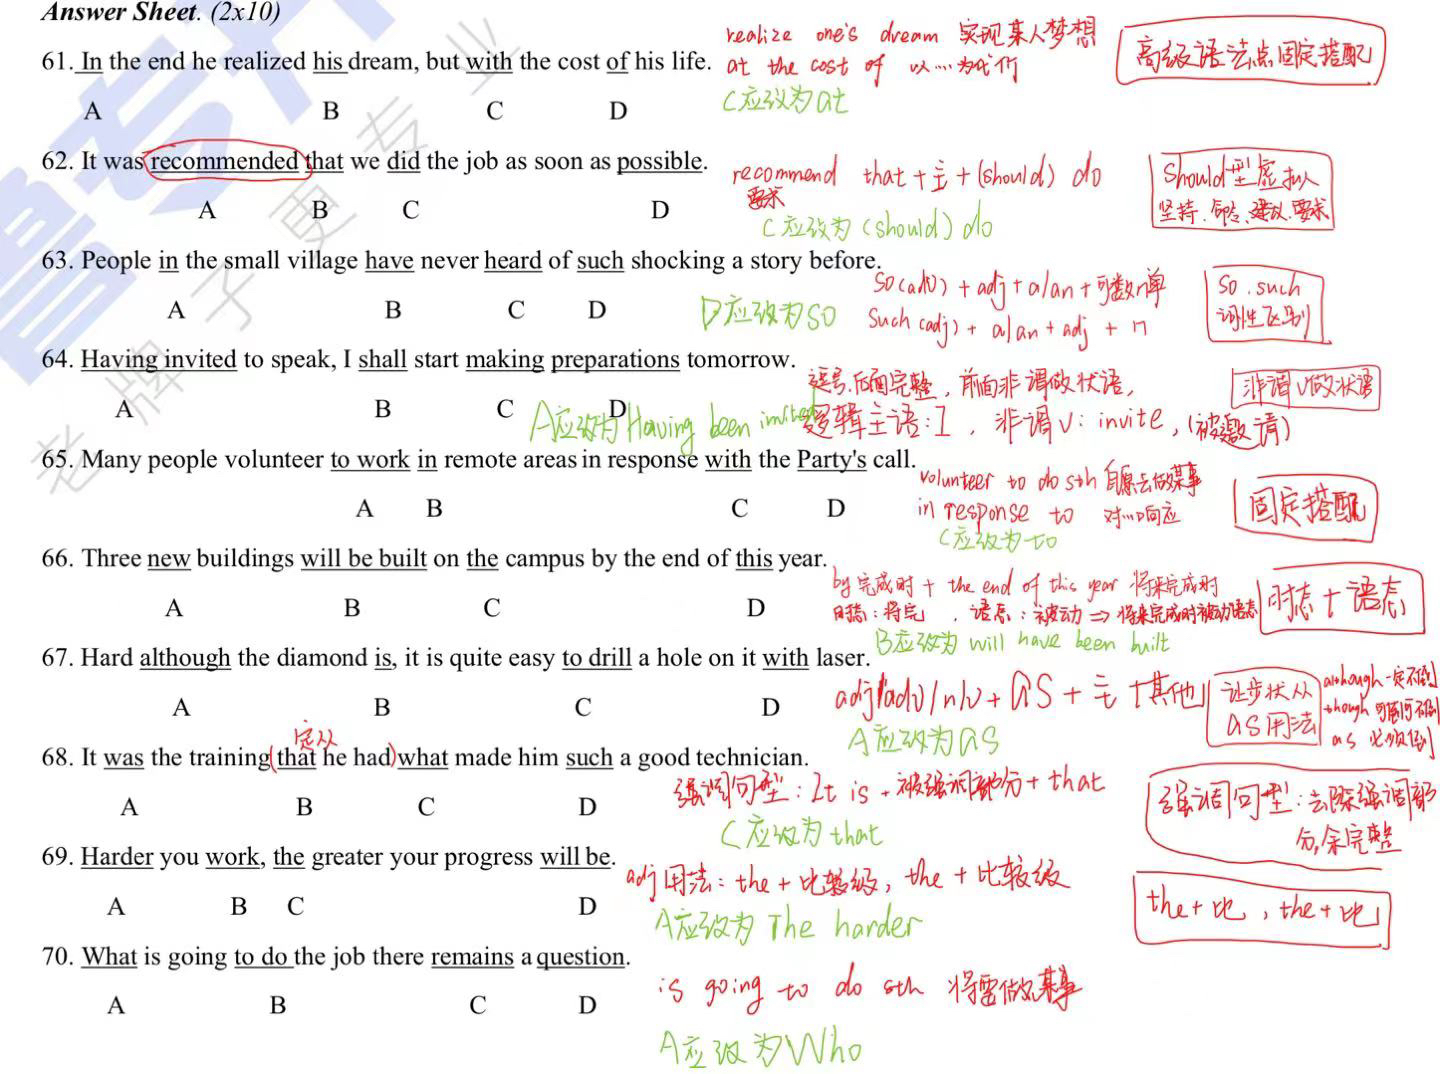 Answer Sheet. (2x10)
61. In the end he realized his dream, but with the cost of his life.
realize one's dream 实现某人梦想
at the cost of 以…为代价
高级语法点固定搭配
C应改为at
A B C D
62. It was recommended that we did the job as soon as possible.
recommend that+主+(should) do
要求
should型虚拟
坚持、命令、建议、要求
C应改为(should) do
A B C D
63. People in the small village have never heard of such shocking a story before.
so(adv)+adj+a/an+可数n单
such(adj)+a/an+adj+n
so.such
词性区别
D应改为so
A B C D
64. Having invited to speak, I shall start making preparations tomorrow.
逗号后面完整，前面非谓做状语，
逻辑主语：I，非谓V：invite，(被邀请)
非谓V做状语
A应改为Having been invited
A B C D
65. Many people volunteer to work in remote areas in response with the Party's call.
volunteer to do sth 自愿去做某事
in response to 对…响应
固定搭配
C应改为to
A B C D
66. Three new buildings will be built on the campus by the end of this year.
by完成时+the end of this year 将来完成时
时态：将完，语态：被动⇒将来完成时被动语态
时态+语态
B应改为will have been built
A B C D
67. Hard although the diamond is, it is quite easy to drill a hole on it with laser.
adj/adv/n/v+as+主+其他
让步状从
as用法
although一定不倒
though可倒可不倒
as必须倒
A应改为as
A B C D
定从
68. It was the training (that he had) what made him such a good technician.
强调句型：It is+被强调部分+that
强调句型：去除强调部
分,余完整
C应改为that
A B C D
69. Harder you work, the greater your progress will be.
adj用法：the+比较级，the+比较级
the+比，the+比
A应改为The harder
A B C D
70. What is going to do the job there remains a question.
is going to do sth 将要做某事
A应改为Who
A B C D
鲁专升
老牌子更专业